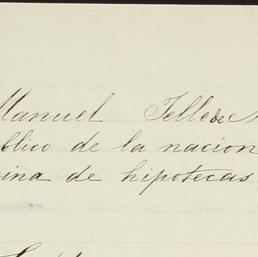 Manuel Telle de
blico de la nacion
ina de hipotecas